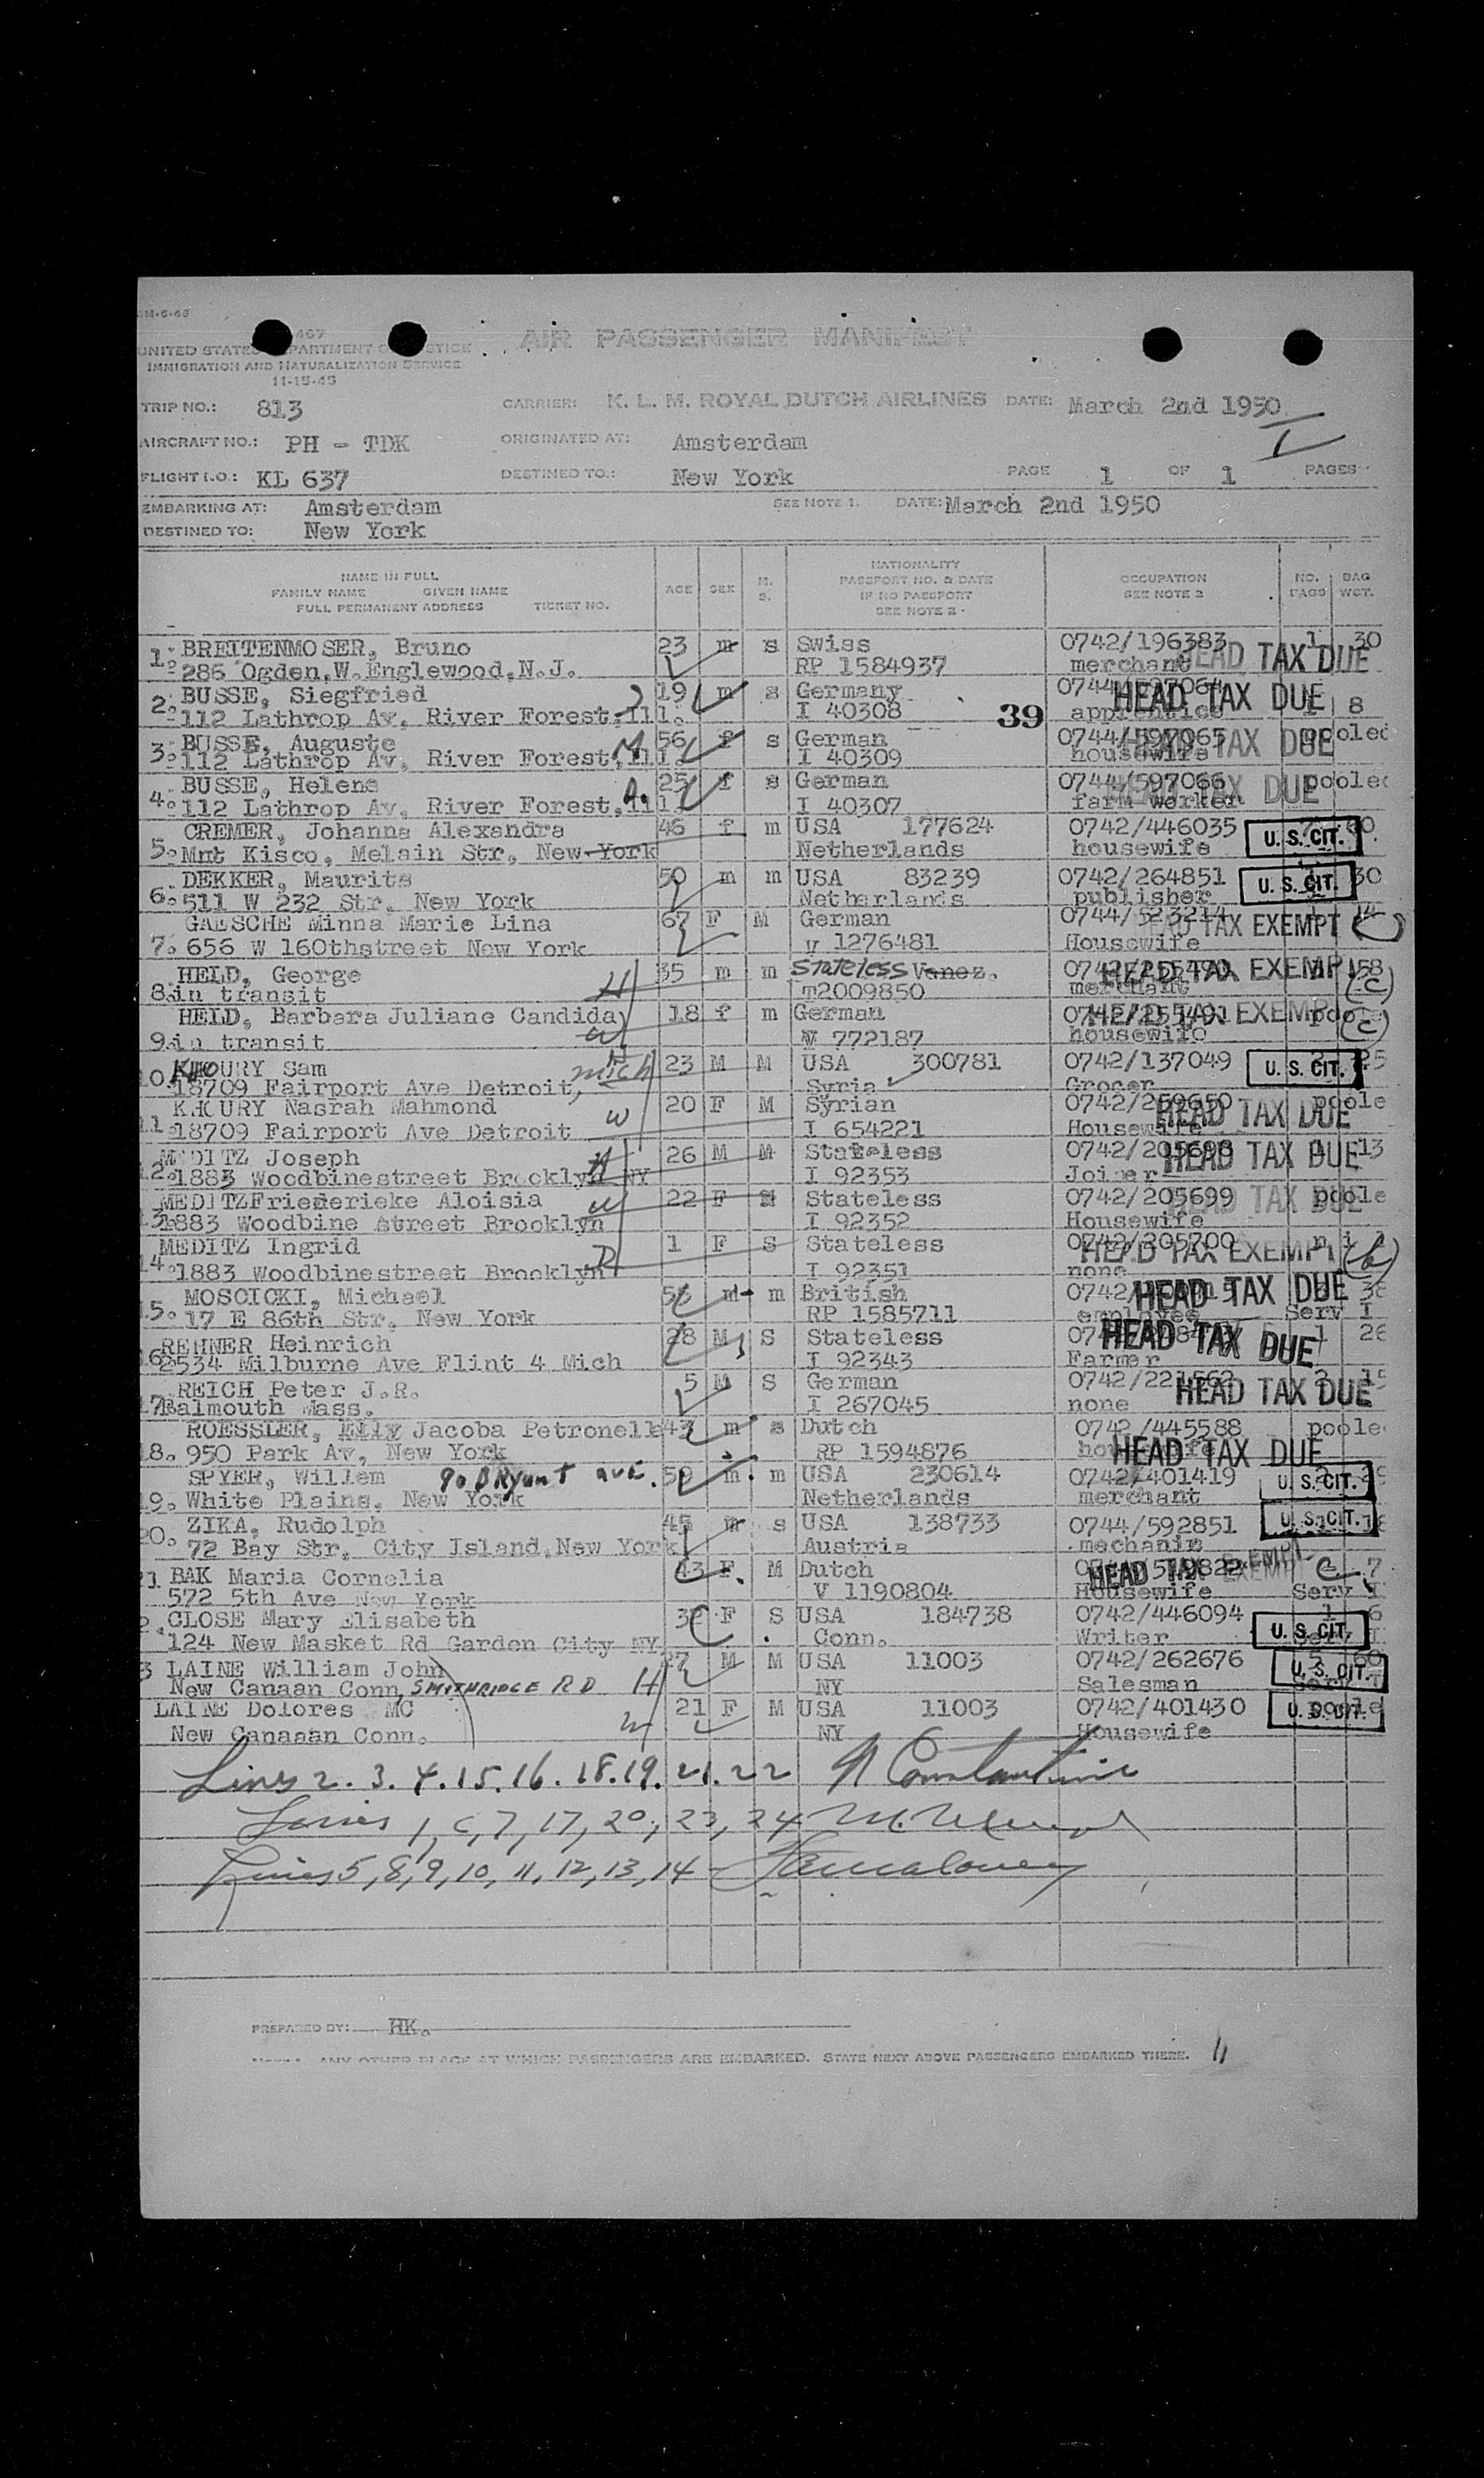 AIR PASSENGER MANIFEST
UNITED STATES DEPARTMENT OF JUSTICE
IMMIGRATION AND NATURALIZATION SERVICE
11-15-45
TRIP NO.: 813 CARRIER: K. L. M. ROYAL DUTCH AIRLINES DATE: March 2nd 1950
AIRCRAFT NO.: PH - TDK ORIGINATED AT: Amsterdam
FLIGHT I.O.: KL 637 DESTINED TO.: New York PAGE 1 OF 1 PAGES
EMBARKING AT: Amsterdam SEE NOTE 1. DATE: March 2nd 1950
DESTINED TO: New York
NAME IN FULL
FAMILY NAME GIVEN NAME
FULL PERMANENT ADDRESS TICKET NO.
AGE SEX M. S.
NATIONALITY
PASSPORT NO. & DATE
IF NO PASSPORT
SEE NOTE 2
OCCUPATION
SEE NOTE 2
NO. BAGS
BAG WGT.
1. BREITENMOSER, Bruno 23 m s Swiss 0742/196383 1 30
286 Ogden, W. Englewood, N.J. RP 1584937 merchant HEAD TAX DUE
2. BUSSE, Siegfried 19 m s Germany HEAD TAX DUE 8
112 Lathrop Av. River Forest, Ill. I 40308 39 apprentice
3. BUSSE, Auguste 56 f s German 0744/597065 pooled
112 Lathrop Av. River Forest, Ill. I 40309 housewife HEAD TAX DUE
4. BUSSE, Helene 25 f s German 0744/597066 pooled
112 Lathrop Av. River Forest, Ill. I 40307 farm worker HEAD TAX DUE
CREMER, Johanna Alexandra 46 f m USA 177624 0742/446035
5. Mnt Kisco, Melain Str, New York Netherlands housewife U. S. CIT.
DEKKER, Maurits 50 m m USA 83239 0742/264851 30
6. 511 W 232 Str. New York Netherlands publisher U. S. CIT.
GAESCHE Minna Marie Lina 67 F M German 0744/523214 14
7. 656 W 160thstreet New York V 1276481 Housewife HEAD TAX EXEMPT (c)
HELD, George 35 m m Stateless Venez. HEAD TAX EXEMPT 58
8. in transit H T2009850 merchant (c)
HELD, Barbara Juliane Candida 18 f m German HEAD TAX EXEMPT
9. in transit W V 772187 housewife (c)
10. KHOURY Sam 23 M M USA 300781 0742/137049 25
18709 Fairport Ave Detroit, Mich H Syria Grocer U. S. CIT.
KHOURY Nasrah Mahmond 20 F M Syrian 0742/259650 poole
11. 18709 Fairport Ave Detroit W I 654221 Housewife HEAD TAX DUE
MEDITZ Joseph 26 M M Stateless 0742/205698 13
12. 1883 Woodbinestreet Brooklyn NY H I 92353 Joiner HEAD TAX DUE
MEDITZ Friederieke Aloisia 22 F Stateless 0742/205699 poole
13. 1883 Woodbine street Brooklyn W I 92352 Housewife HEAD TAX DUE
MEDITZ Ingrid 1 F S Stateless 0742/205700
14. 1883 Woodbinestreet Brooklyn D I 92351 none HEAD TAX EXEMPT (b)
MOSCICKI, Michael m m British HEAD TAX DUE
15. 17 E 86th Str. New York RP 1585711 employee Serv I
REHNER Heinrich 28 M S Stateless HEAD TAX DUE 1 26
16. 2534 Milburne Ave Flint 4 Mich I 92343 Farmer
REICH Peter J.R. 5 M S German 0742/221562 2 15
17. Falmouth Mass. I 267045 none HEAD TAX DUE
ROESSLER, Elly Jacoba Petronella 43 m s Dutch 0742/445588 pooled
18. 950 Park Av, New York RP 1594876 housewife HEAD TAX DUE
SPYER, Willem 90 BRyant ave. 50 m m USA 230614 0742/401419
19. White Plains, New York Netherlands merchant U. S. CIT.
20. ZIKA, Rudolph 45 m s USA 138733 0744/592851 U. S. CIT.
72 Bay Str. City Island, New York Austria mechanic
21 BAK Maria Cornelia 43 F M Dutch HEAD TAX EXEMPT 7
572 5th Ave New York V 1190804 Housewife Serv I
2. CLOSE Mary Elisabeth F S USA 184738 0742/446094 1 6
124 New Masket Rd Garden City NY Conn. Writer U. S. CIT.
3 LAINE William John 27 M M USA 11003 0742/262676 60
New Canaan Conn, SMITHRIDGE RD H NY Salesman U. S. CIT.
LAINE Dolores MC 21 F M USA 11003 0742/401430 poole
New Canaaan Conn. W NY Housewife U. S. CIT.
Lines 2. 3. 4. 15. 16. 18. 19. 21. 22 Constantine
Lines 1, 6, 7, 17, 20, 23, 24
Lines 5, 8, 9, 10, 11, 12, 13, 14
PREPARED BY: HK.
ANY OTHER PLACE AT WHICH PASSENGERS ARE EMBARKED. STATE NEXT ABOVE PASSENGERS EMBARKED THERE. 11